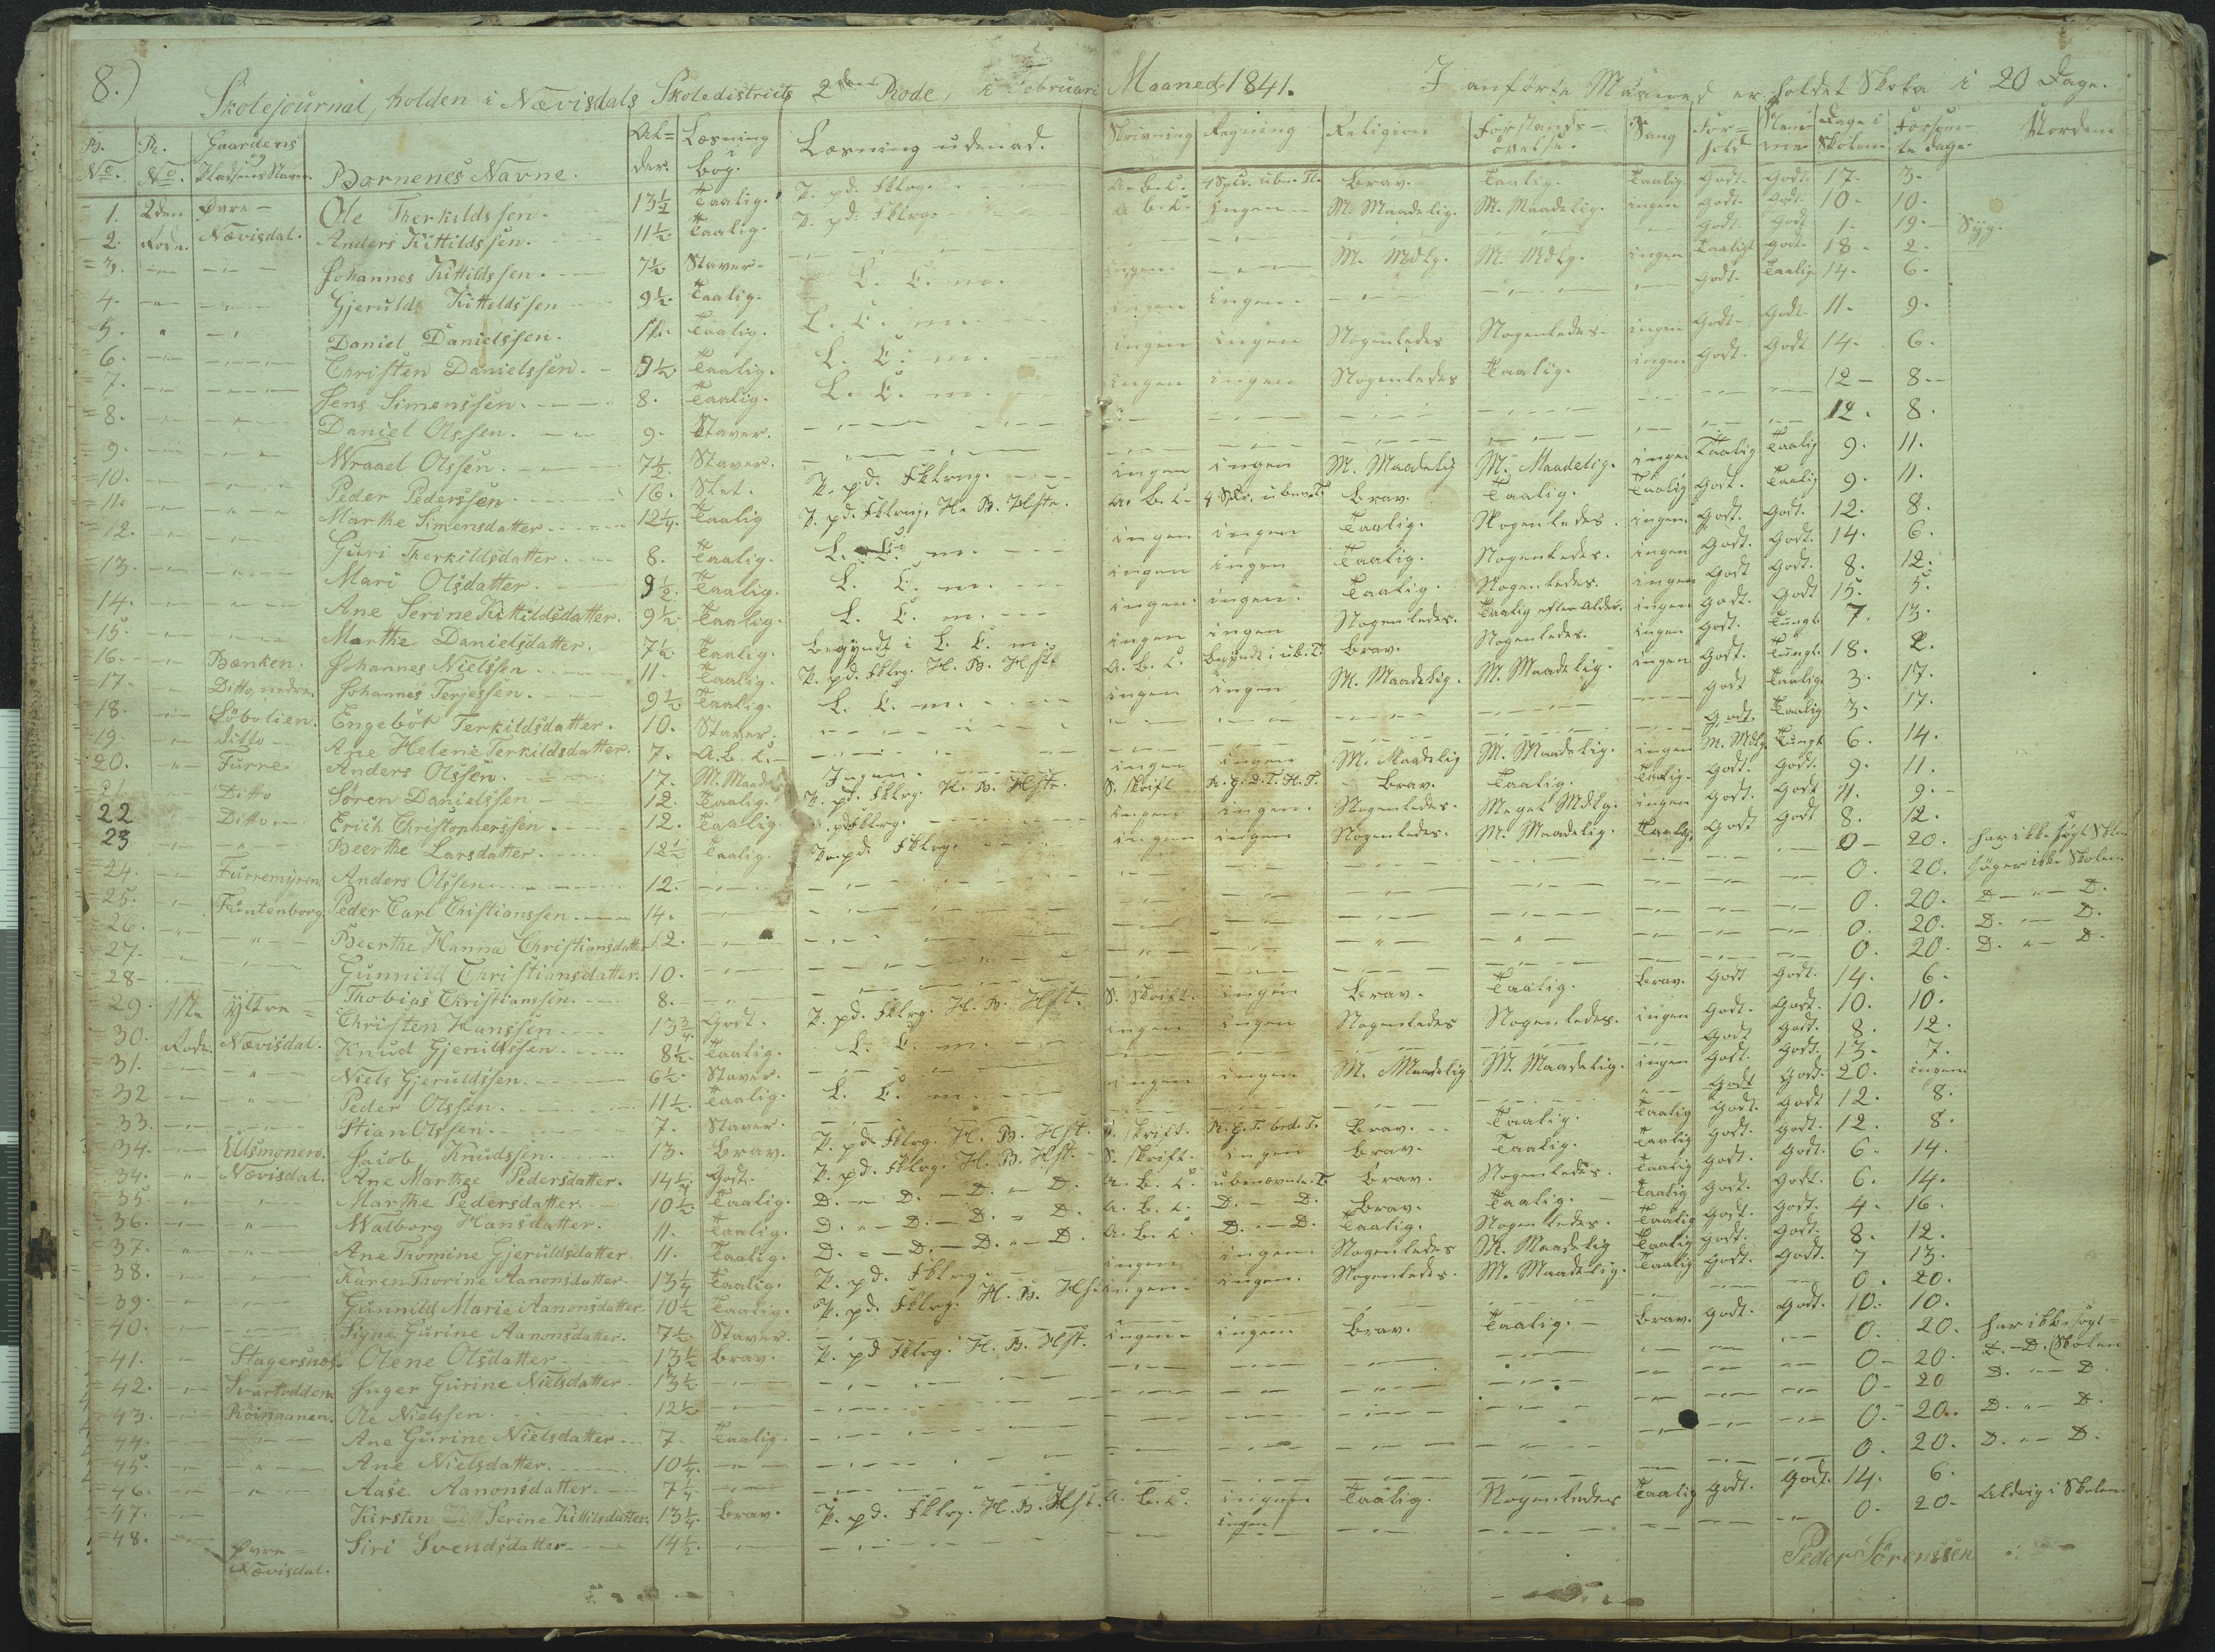 8.) Skolejournal, holden i Nævisdals Skoledistricts 2den Rode, i Februari Maaned 1841. I anførte Maaned er holdet Skole i 20 Dage.
B. No. R. No. Gaardens og Pladsens Navne. Børnenes Navne. Alder. Læsning i Bog. Læsning udenad. Skrivning Regning Religion Forstands-øvelse. Sang Forhold Nemme Dage i Skolen. Forsømte Dage.
1. 2den Øvre- Ole Therkildssen. 13½ Taalig. P. pd. Fklrg. A.B.C. brav. Taalig. Taalig godt. godt. 17. 3.
2. Rode. Nævisdal. Anders Kittildssen. 11½ Taalig. P. pd. Fklrg. A.B.C. Ingen M. Maadelig. M. Maadelig. ingen godt. godt. 10. 10.
3. Johannes Kittildssen. 7½ Staver. godt godt 1. 19. Syg.
4. Gjeruld Kittildssen 9½ Taalig. L. C. m. ingen. M. Mdlg. M. Mdlg. ingen Taalig godt. 18. 2.
5. Daniel Danielssen. 11. Taalig. L. C. m. ingen ingen. godt. Taalig. 14. 6.
6. Christen Danielssen. 9½ Taalig. L. C. m. ingen ingen Nogenledes Nogenledes ingen godt. godt. 11. 9.
7. Jens Simenssen. 8. Taalig. L. C. m. ingen ingen Nogenledes Taalig. ingen godt. godt 14. 6.
8. Daniel Olssen. 9. Staver. 12 8
9. Wraael Olssen. 7½ Staver. 12. 8.
10. Peder Pederssen 16. Slet. P. pd. Fklrng. ingen ingen M. Maadelig M. Maadelig. ingen Taalig Taalig 9. 11.
11. Marthe Simensdatter 12¼ Taalig P. pd. Fklrng. H. B. Hlste. A.B.C. brav. Taalig. Taalig godt. Taalig 9. 11.
12. Guri Therkildsdatter. 8. Taalig. L. C. m. ingen ingen Taalig. Nogenledes. ingen. godt. godt. 12. 8.
13. Mari Olsdatter. 9½ Taalig. L. C. m. ingen ingen Taalig. Nogenledes. ingen godt. godt. 14. 6.
14. Ane Serine Kittildsdatter. 9½ Taalig. L. C. m. ingen. ingen. Taalig. Nogenledes. ingen godt godt. 8. 12.
15. Marthe Danielsdatter. 7½ Taalig. Begyndt i L. C. m. ingen ingen Nogenledes. Taalig efter Alder. ingen godt. godt 15. 5.
16. Bænken. Johannes Nielssen 11. Taalig. P. pd. Fklrg. H. B. Hlst. A.B.C. brav. Nogenledes. ingen godt. Tungt. 7. 13.
17. Ditto, nedre. Johannes Terjessen. 9½ Taalig. L. C. m. ingen ingen M. Maadelig. M. Maadelig. ingen godt. Tungt. 18. 2.
18. Løbolien. Engebör Terkildsdatter. 10. Staver. godt Taalig. 3. 17.
19. ditto Ane Helene Terkildsdatter. 7. A.B.C. godt. Taalig 3. 17.
20. Furre. Anders Olssen. 17. M. Maad. Ingen. ingen ingen M. Maadelig M. Maadelig. ingen M. Mdlg. Tungt 6. 14.
21. Ditto Søren Danielssen 12. Taalig. P. pd. Fklrg. H. B. Hlste. S. Skrift brav. Taalig. Taalig. godt. godt. 9. 11.
22 Ditto Erich Christopherssen. 12. Taalig ingen ingen. Nogenledes. Meget Mdlg. ingen godt. godt 11. 9.
23 Beerthe Larsdatter. 12½ Taalig. P. pd. Fklrg. ingen ingen Nogenledes. M. Maadelig. Taalig. godt godt 8. 12.
24. Furremyren. Anders Olssen. 12. 0 20. har ikke søgt Skolen
25. Funtenborg. Peder Carl Christianssen. 14. 0. 20. søger ikke Skolen.
26. Beerthe Hanna Christiansdatter 12. 0. 20. D. D.
27. Gunnild Christiansdatter. 10. 0. 20. D. D.
28 Thobias Christianssen. 8. 0. 20. D. D.
29. 1ste Yttre Christen Hanssen 13¾ Godt. P. pd. Fklrg. H. B. Hlst. S. Skrift. ingen brav. Taalig. brav. godt godt. 14. 6.
30. Rode. Nævisdal. Knud Gjeruldssen 8½ Taalig. L. C. m. ingen ingen Nogenledes Nogenledes. ingen godt. godt. 10. 10.
31. Niels Gjeruldssen. 6½ Staver. godt godt. 8. 12.
32 Peder Olssen. 11½ Taalig. L. C. m. ingen ingen M. Maadelig M. Maadelig. ingen godt. godt. 13. 7.
33. Stian Olssen. 7. Staver. godt godt. 20. ingen.
34. Ulsmoneso. Jacob Knudssen. 13. Brav. P. pd. Fklrg. H. B. Hlst. S. Skrift. brav. Taalig. Taalig godt. godt 12. 8.
34. Nævisdal. Ane Marthe Pedersdatter. 14¼ Godt. P. pd. Fklrg. H. B. Hlst. S. Skrift. ingen brav. Taalig. Taalig godt. godt. 12. 8.
35. Marthe Pedersdatter. 10½ Taalig. D. D. D. D. A.B.C. brav. Nogenledes. Taalig godt. godt. 6. 14.
36. Walborg Hansdatter. 11. Taalig. D. D. D. D. A.B.C. D. D. brav. Taalig. Taalig godt. godt. 6. 14.
37. Ane Tromine Gjeruldsdatter. 11. Taalig. D. D. D. D. A.B.C. D. D. Taalig. Nogenledes. Taalig godt. godt. 4. 16.
38. Karen Thorine Aanonsdatter. 13¼ Taalig. P. pd. Fklrg. ingen ingen. Nogenledes M. Maadelig Taalig godt. godt. 8. 12.
39. Gunnild Marie Aanonsdatter 10½ Taalig. P. pd. Fklrg. H. B. Hlst. ingen. ingen. Nogenledes. M. Maadelig. Taalig godt. godt. 7 13.
40. Signe Gurine Aanonsdatter. 7½ Staver. 0. 20.
41. Stagersnæs. Olene Olsdatter 13½ Brav. P. pd Fklrg. H. B. Hlst. ingen. ingen brav. Taalig. brav. godt. godt. 10. 10.
42. Svartodden Inger Gurine Nielsdatter 13½ 0. 20. har ikke søgt
43. Röinaanen. Ole Nielssen. 12½ 0 20. D. D. (Skolen
44. Ane Gurine Nielsdatter 7. Taalig. 0 20 D. D.
45. Ane Nielsdatter. 10¼ 0. 20. D. D.
46. Aase Aanonsdatter. 7¼ 0. 20. D. D.
47. Kirsten Serine Kittilsdatter. 13¼ brav. P. pd. Fklrg. H. B. Hlst. A.B.C. ingen Taalig. Nogenledes Taalig godt. godt. 14. 6.
48. Øvre Nævisdal. Siri Svendsdatter 14½ ingen 0. 20. Aldrig i Skolen.
Peder Sörenssen